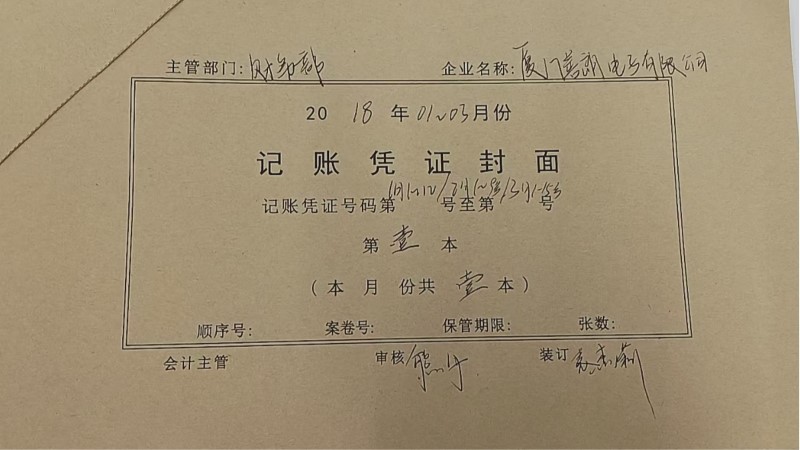 主管部门：财务部 企业名称：厦门 电子有限公司
2018年01~03月份
记账凭证封面
记账凭证号码第1月1~12/2月1~9/3月1~ 号至第 号
第壹本
（本月份共壹本）
顺序号： 案卷号： 保管期限： 张数：
会计主管 审核 装订